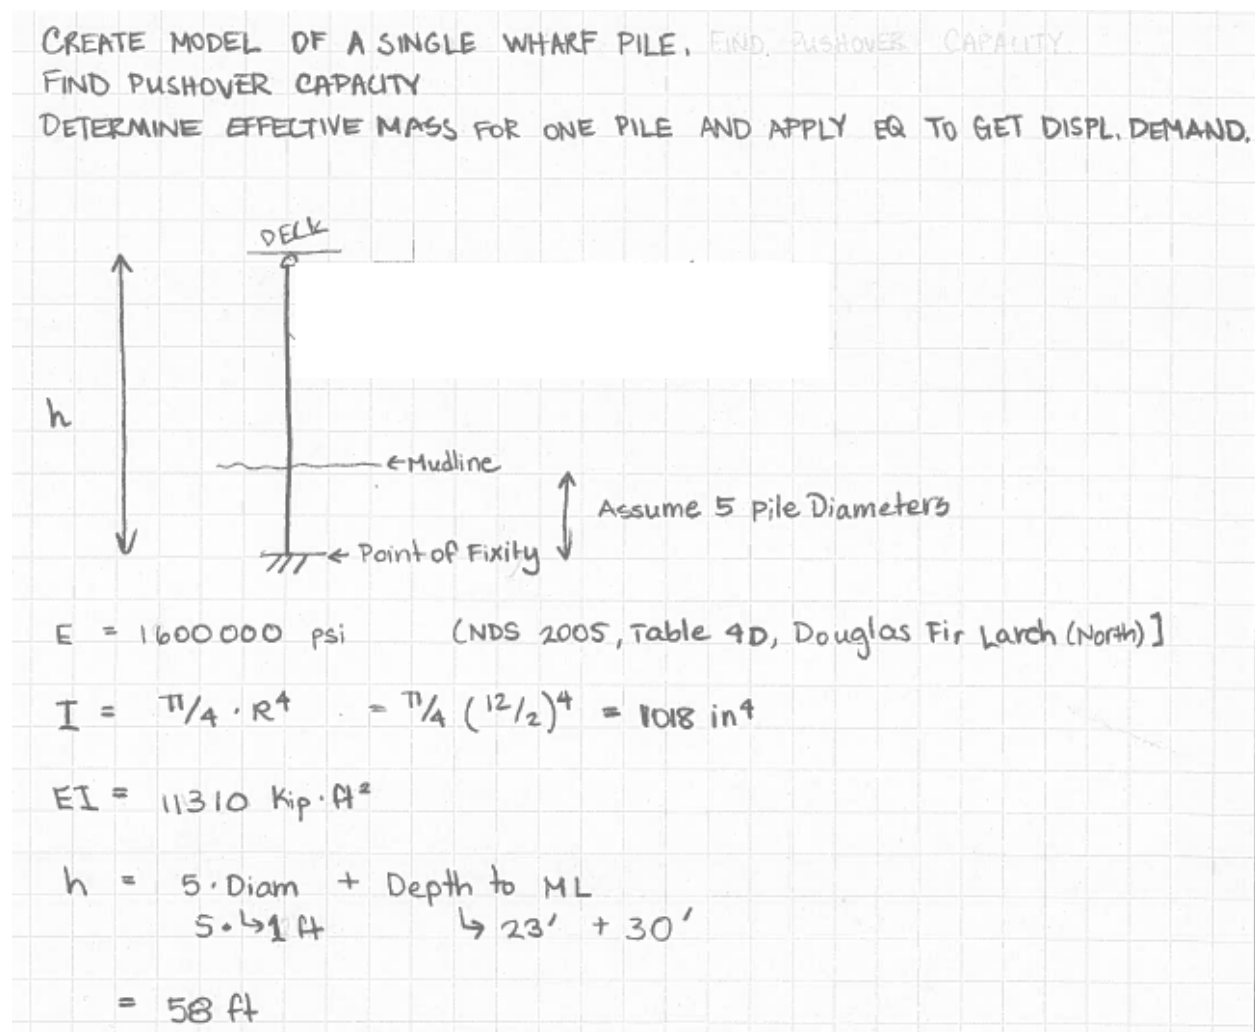 CREATE MODEL OF A SINGLE WHARF PILE. FIND PUSHOVER CAPACITY.
FIND PUSHOVER CAPACITY
DETERMINE EFFECTIVE MASS FOR ONE PILE AND APPLY EQ TO GET DISPL. DEMAND.
DECK
h
←Mudline
Assume 5 pile Diameters
← Point of Fixity
E = 1600000 psi (NDS 2005, Table 4D, Douglas Fir Larch (North)]
I = π/4 · R⁴ = π/4 (12/2)⁴ = 1018 in⁴
EI = 11310 Kip·ft²
h = 5·Diam + Depth to ML
5·↳1 ft ↳ 23' + 30'
= 58 ft